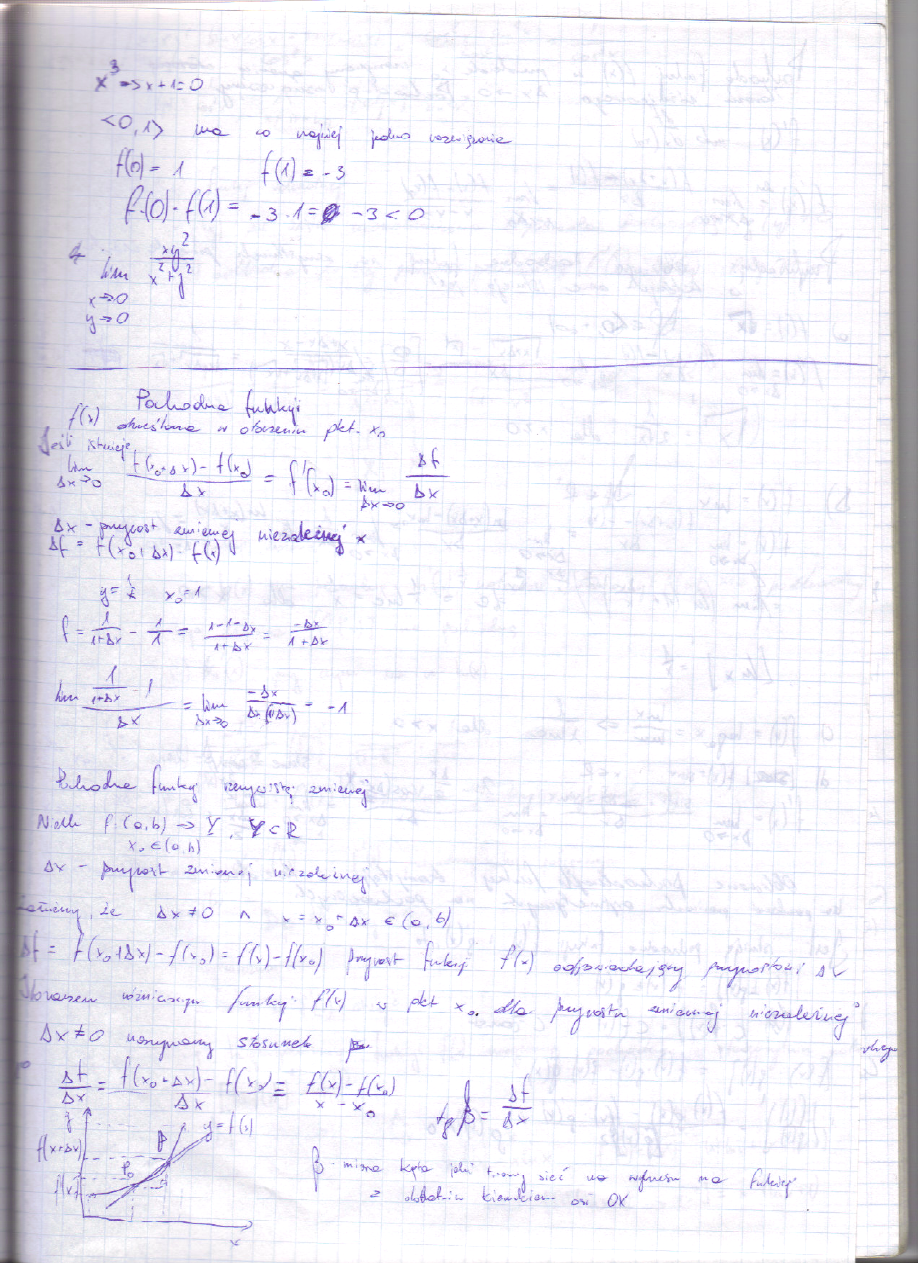 x³ - 3x + 1 = 0
<0,1> ma co najwyżej jedno rozwiązanie
f(0) = 1 f(1) = -3
f(0) · f(1) = -3 · 1 = -3 < 0
lim xy²/x² + y²
x→0
y→0
Pochodna funkcji
f(x) określona w otoczeniu pkt. x₀
Jeśli istnieje
lim Δx→0 f(x₀+Δx) - f(x₀)/Δx = f'(x₀) = lim Δx→0 Δf/Δx
Δx - przyrost zmiennej niezależnej x
Δf = f(x₀+Δx) - f(x)
y = 1/x x₀ = 1
f = 1/1+Δx - 1/1 = 1-1-Δx/1+Δx = -Δx/1+Δx
lim 1/1+Δx - 1/Δx = lim Δx→0 -Δx/Δx(1+Δx) = -1
Pochodna funkcji rzeczywistej zmiennej
Niech f: (a,b) → Y, Y ⊂ R
x₀ ∈ (a,b)
Δx - przyrost zmiennej niezależnej
że Δx ≠ 0 ∧ x = x₀ + Δx ∈ (a,b)
Δf = f(x₀+Δx) - f(x₀) = f(x) - f(x₀) przyrost funkcji f(x) odpowiadający przyrostowi Δx
Ilorazem różnicowym funkcji f(x) w pkt x₀ dla przyrostu zmiennej niezależnej
Δx ≠ 0 nazywamy stosunek
Δf/Δx = f(x₀+Δx) - f(x₀)/Δx = f(x) - f(x₀)/x - x₀
tg β = Δf/Δx
y = f(x)
f(x+Δx)
P
P₀
f(x)
x
β - miara kąta jaki tworzy sieć na wykresu na funkcji
z dodatnim kierunkiem osi OX